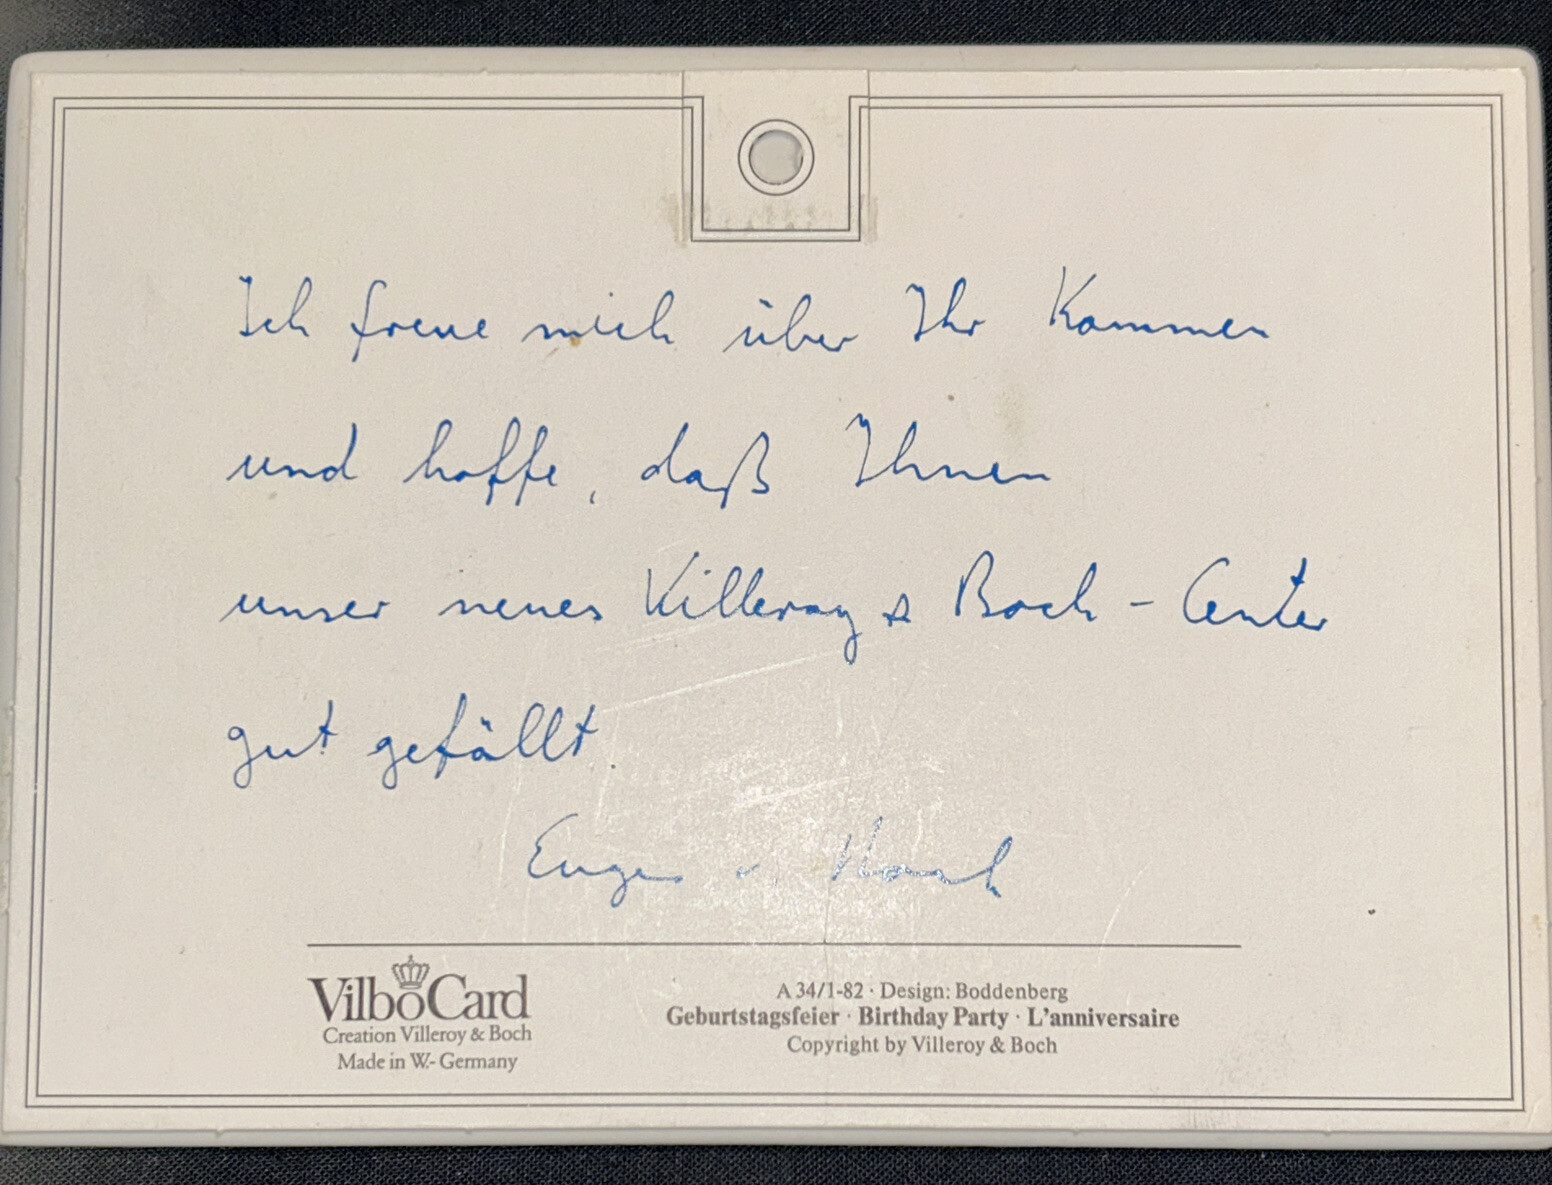 Ich freue mich über Ihr Kommen
und hoffe, daß Ihnen
unser neues Villeroy & Boch - Center
gut gefällt.
Eugen v.
VilboCard
Creation Villeroy & Boch
Made in W.- Germany
A 34/1-82 · Design: Boddenberg
Geburtstagsfeier · Birthday Party · L'anniversaire
Copyright by Villeroy & Boch